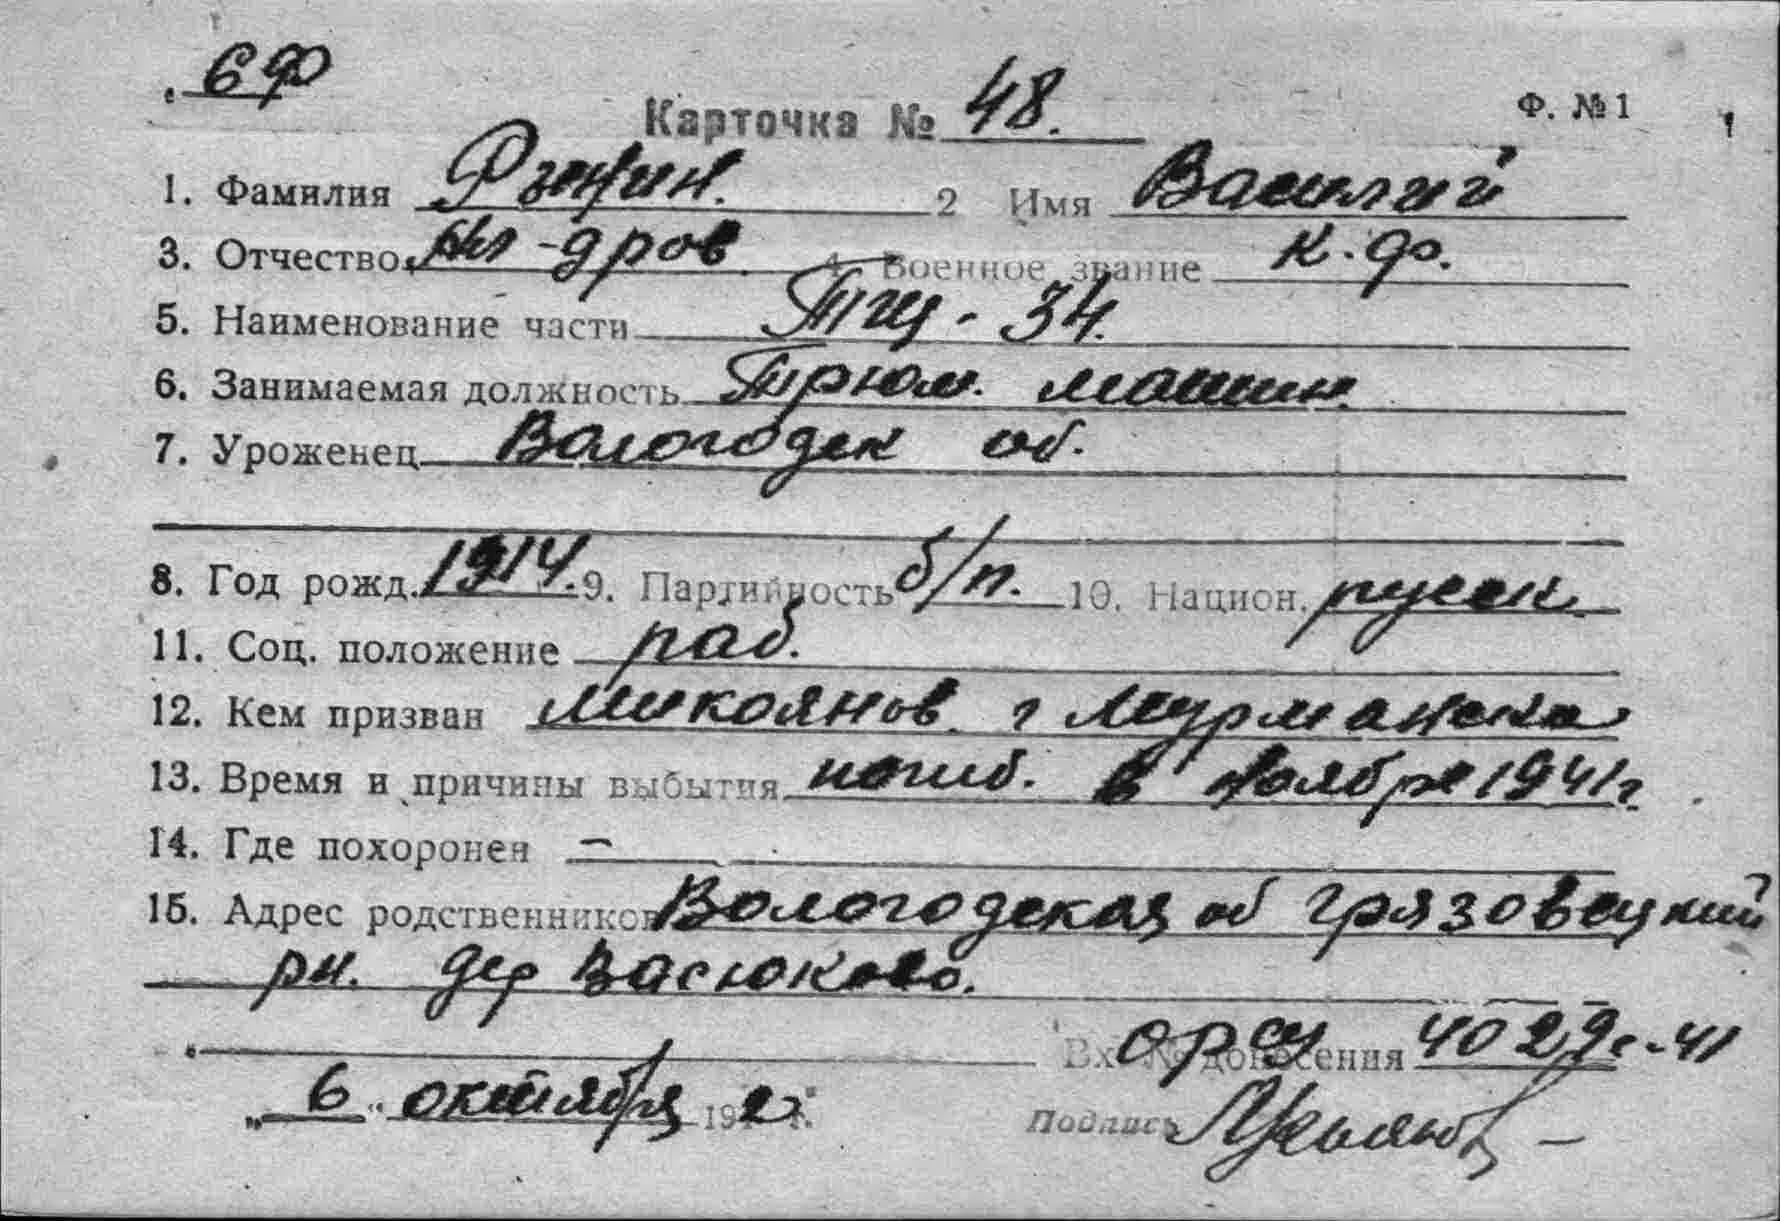 6 Ф
Карточка № 48. Ф. №1
1. Фамилия 2 Имя Василий
3. Отчество Ал-дров 4 Военное звание к.ф.
5. Наименование части ТЩ-34.
6. Занимаемая должность Трюм. машин.
7. Уроженец Вологодск об.
8. Год рожд. 1914. 9. Партийность б/п. 10. Национ. русск
11. Соц. положение раб.
12. Кем призван Микоянов г Мурманска
13. Время и причины выбытия погиб. в ноябре 1941 г.
14. Где похоронен —
15. Адрес родственников Вологодская об Грязовецкий
рн. дер Васюково.
Вх № донесения 4029с-41
„ 6 " октября 1942 г.
Подпись